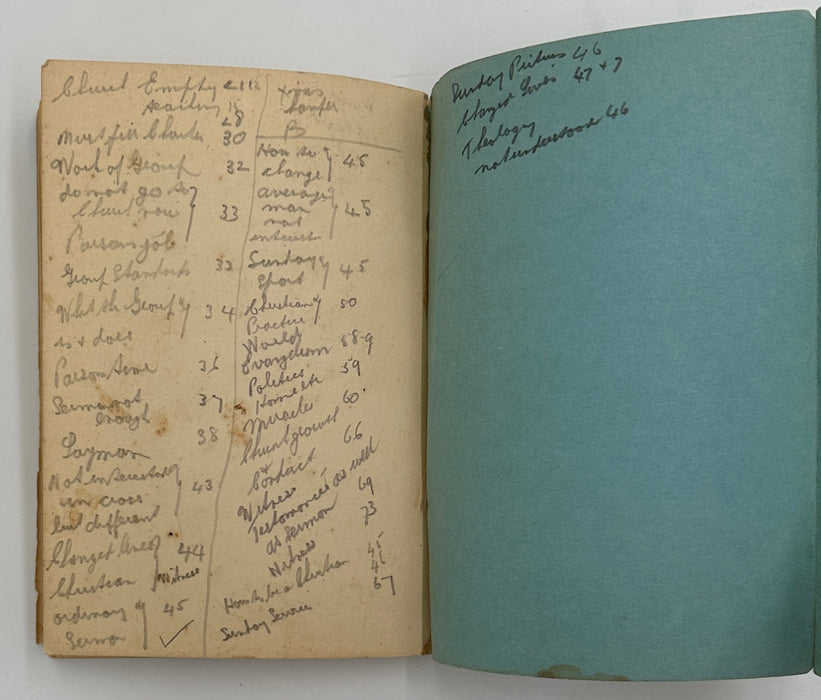 Church Empty
teaching 15
28
Must fill Church 30
Work of Group 32
do not go to
Church now 33
Parson job
Group Standards 33
What the Group 34
is + does
Parsons time 36
Sermon not 37
enough
Layman 38
Not interested
in cross 43
but different
Changed lives 44
Christian Witness
ordinary 45
Sermon ✓
Xmas
B
How to
change 45
average
man 45
not
interest
Sunday
Sport 45
Christian
Practice 50
World
Evangelism 58-9
Politics
Home etc 59
Miracles 60
Church growth
+
Conduct 66
Witness
Testimonies as well
as Sermon 69
Witness 73
How to be a Christian 45
46
Sunday Service 67
Sunday Pictures 46
Changed Lives 47 + 7
Theology
not understood 46